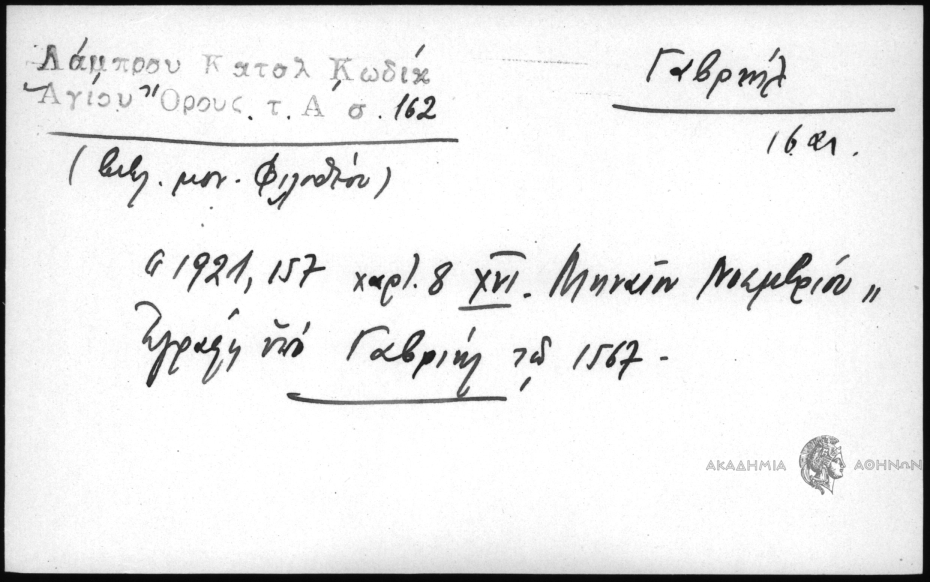 Λάμπρου Καταλ Κωδίκ
Ἁγίου Ὄρους. τ. Α σ. 162
Γαβριήλ
16 αι.
(βιβλ. μον. Φιλοθέου)
1921, 157 χαρτ. 8 XVI. Μηναῖον Νοεμβρίου „
Ἐγράφη ὑπὸ Γαβριὴλ τῷ 1567 -
ΑΚΑΔΗΜΙΑ ΑΘΗΝΩΝ